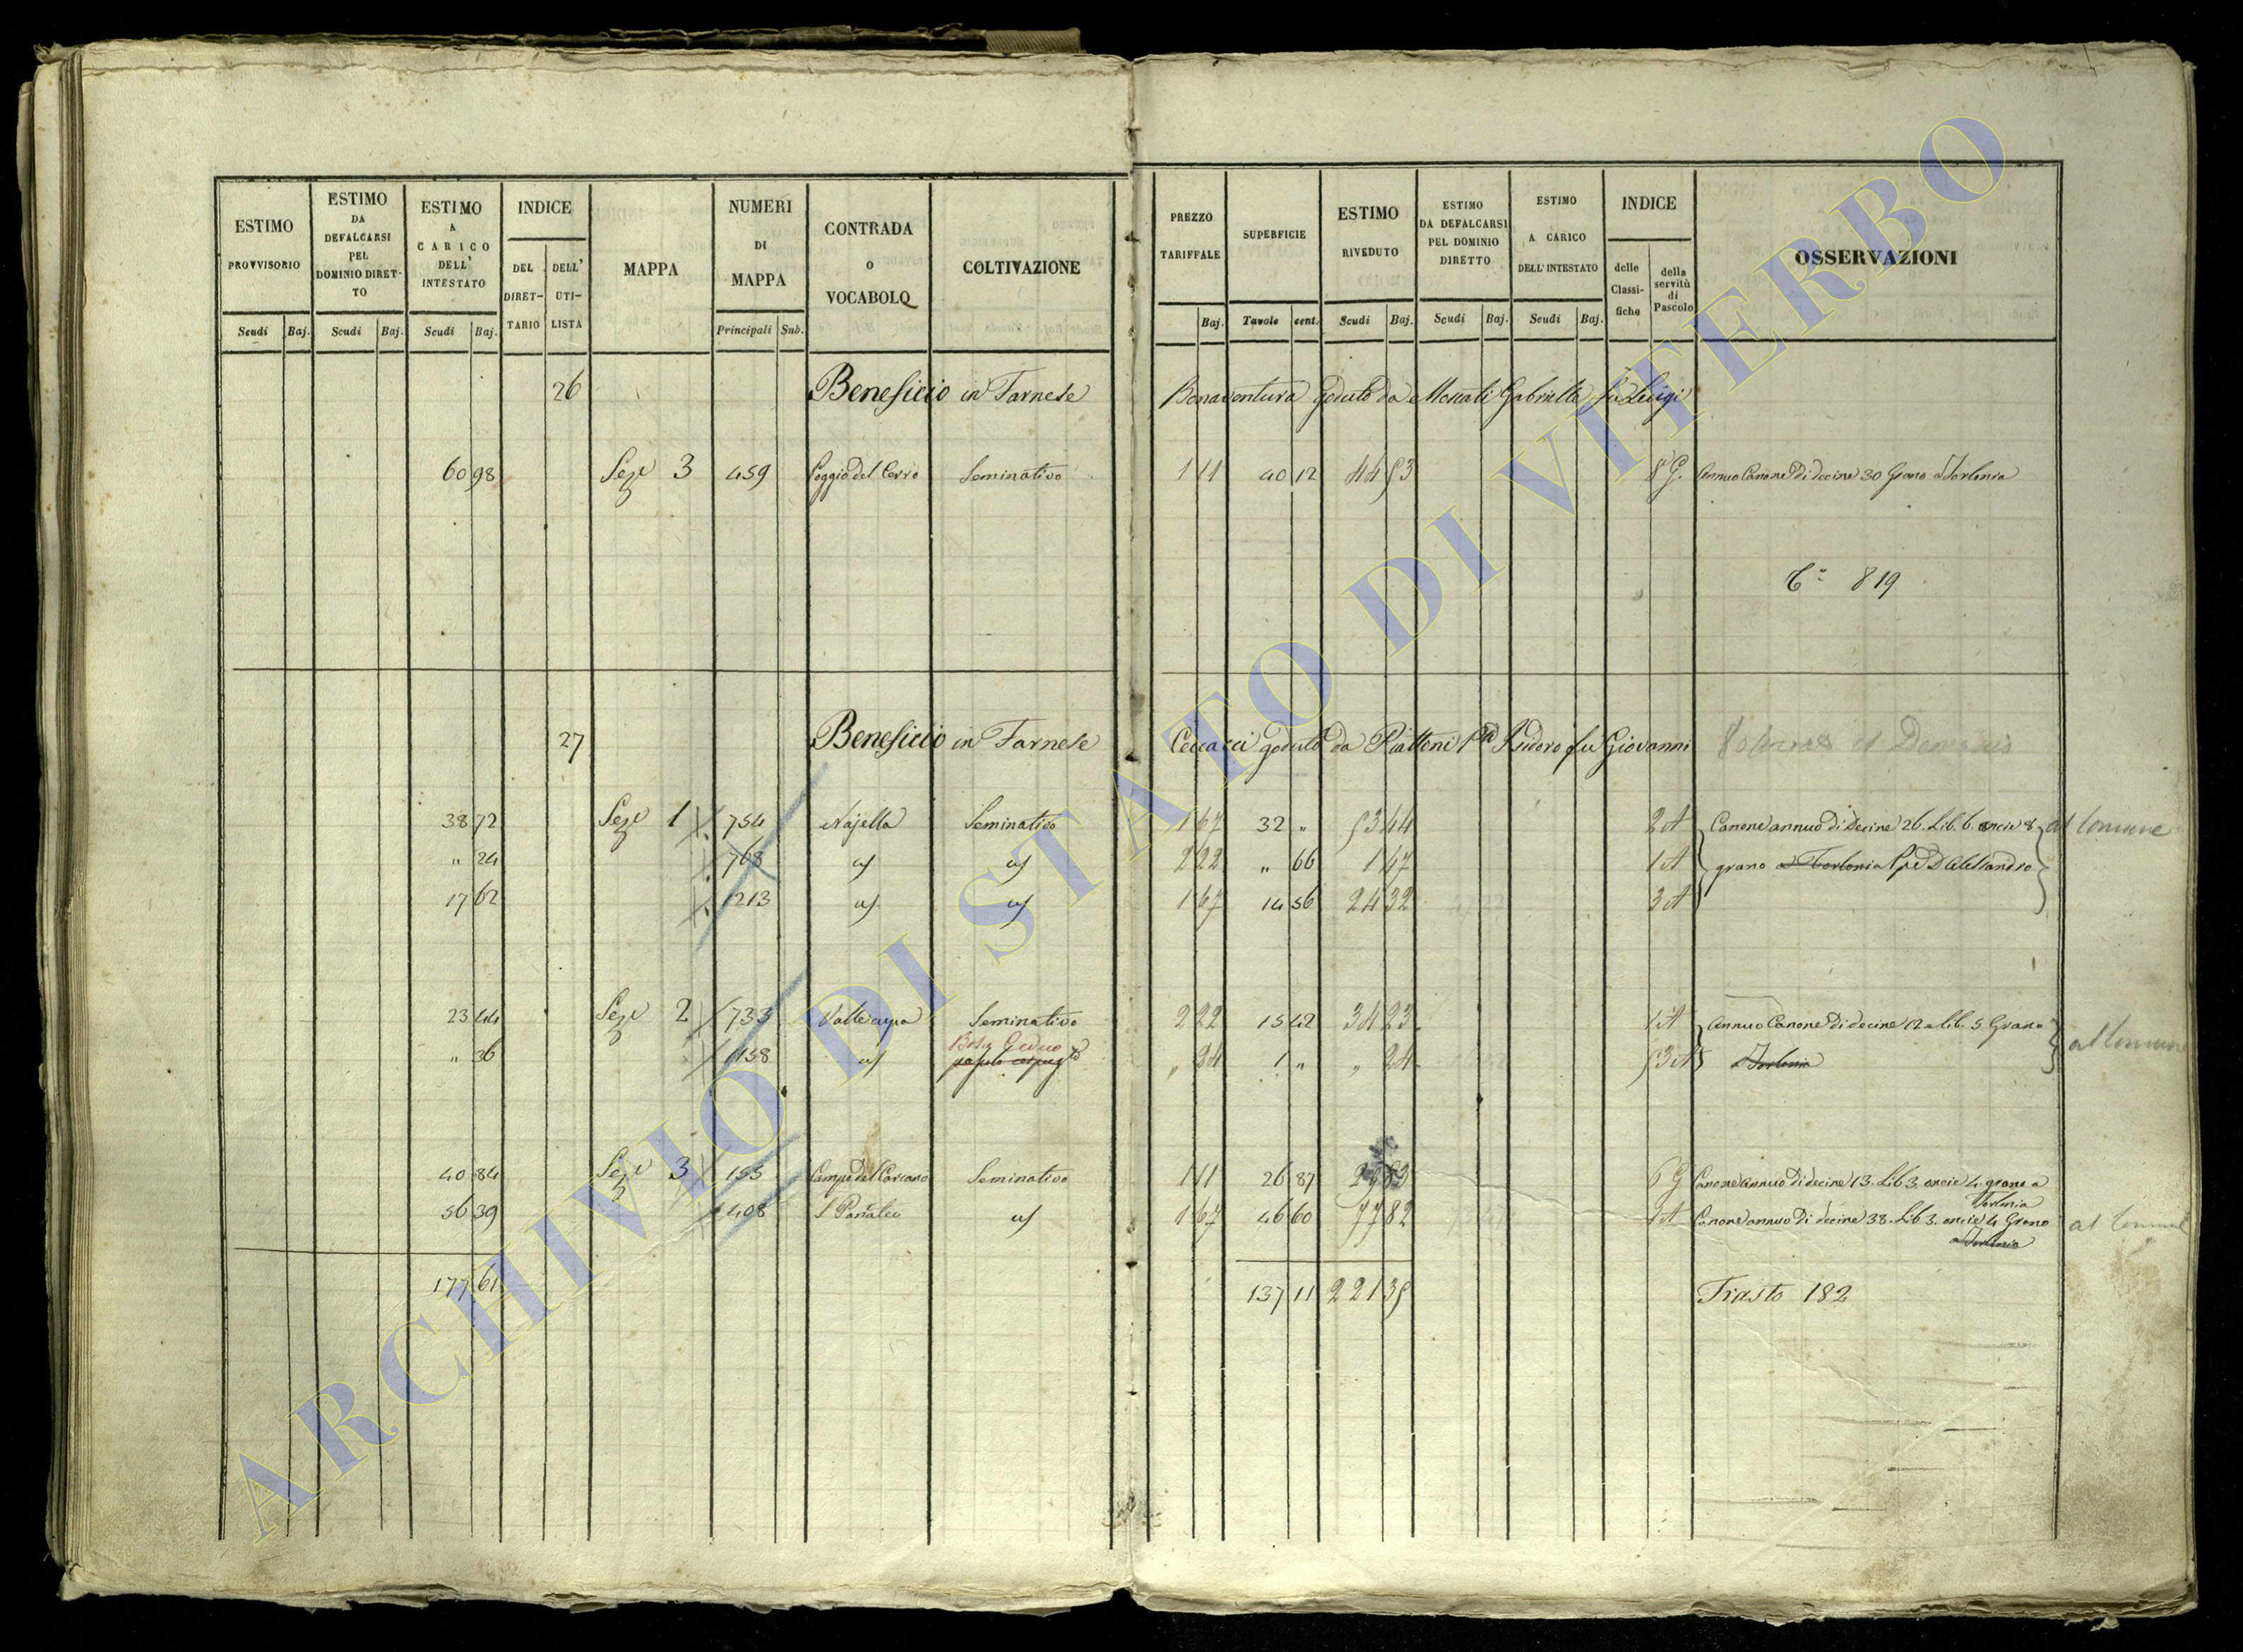 ESTIMO PROVVISORIO
Scudi Baj.
ESTIMO DA DEFALCARSI PEL DOMINIO DIRET-TO
Scudi Baj.
ESTIMO A CARICO DELL' INTESTATO
Scudi Baj.
INDICE
DEL DIRET-TARIO
DELL' UTI-LISTA
MAPPA
NUMERI DI MAPPA
Principali Sub.
CONTRADA O VOCABOLO
COLTIVAZIONE
PREZZO TARIFFALE
Baj.
SUPERFICIE
Tavole cent.
ESTIMO RIVEDUTO
Scudi Baj.
ESTIMO DA DEFALCARSI PEL DOMINIO DIRETTO
Scudi Baj.
ESTIMO A CARICO DELL' INTESTATO
Scudi Baj.
INDICE
delle Classi-fiche
della servitù di Pascolo
OSSERVAZIONI
26 Beneficio in Farnese Bonaventura goduto da Gabriele fu Luigi
60 98 Sez 3 459 Poggio del Cerro Seminativo 1 11 40 12 44 53 8 G. Annuo Canone di decine 30 Grano a Torlonia
819
27 Beneficio in Farnese Ceccacci goduto da Piattoni Isidoro fu Giovanni
38 72 Sez 1 754 Najella Seminativo 1 67 32 " 53 44 2 A Canone annuo di decine 26. Lib. 6 oncie 8 al Comune
" 24 768 " 222 " 66 1 47 1 A grano a Torlonia D Alessandro
17 62 1213 1 67 14 56 24 32 3 A
23 44 Sez 2 733 Valle cupa Seminativo 2 22 15 42 34 23 1 A Annuo Canone di decine 12 e Lib. 5 Grano al Comune
" 36 1158 Bosco Ceduo " 24 1 " " 24 3 A a Torlonia
40 84 Sez 3 155 Campo del Seminativo 1 11 26 87 29 83 6 G Canone annuo di decine 13. Lib 3. oncie 4. grano a
Torlonia
56 39 408 S Pantaleo 1 67 46 60 77 82 Canone annuo di decine 38. Lib 3. oncie 4 Grano al Comune
a Torlonia
177 61 137 11 221 35 Trasto 182
ARCHIVIO DI STATO DI VITERBO